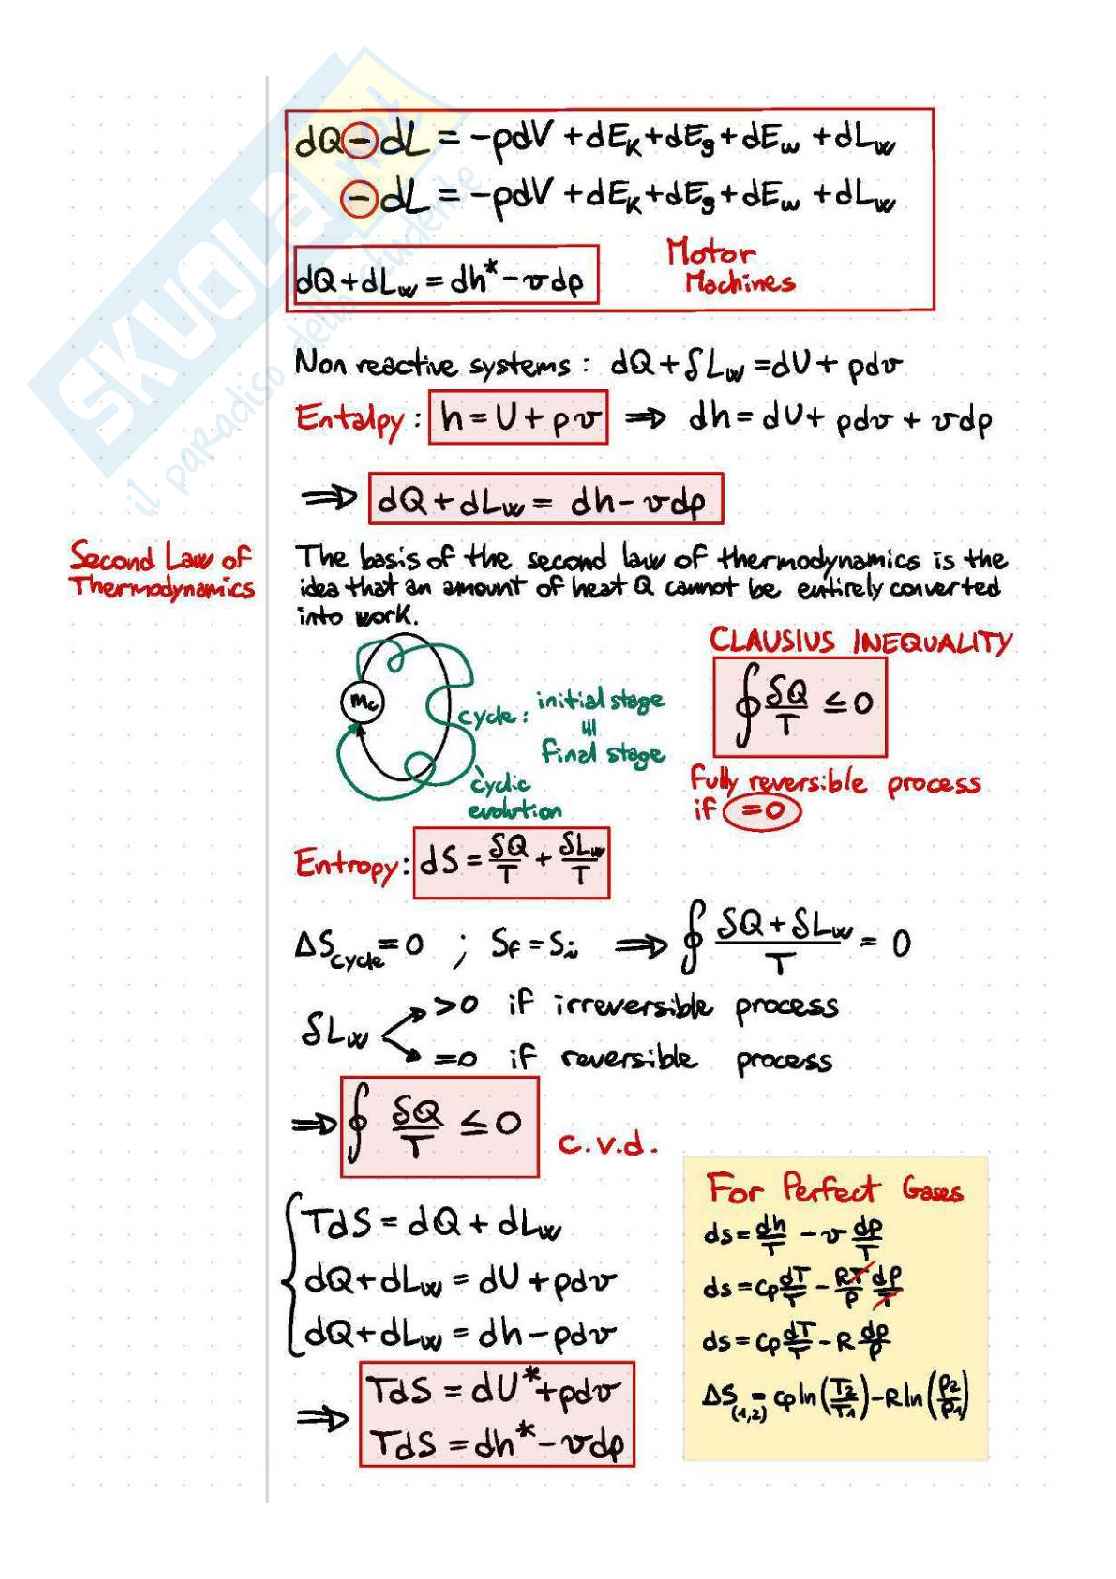 dQ - dL = -pdV + dE_K + dE_g + dE_w + dL_w
- dL = -pdV + dE_K + dE_g + dE_w + dL_w
dQ + dL_w = dh* - vdp
Motor
Machines
Non reactive systems : dQ + δL_w = dU + pdv
Entalpy : h = U + pv ⇒ dh = dU + pdv + vdp
⇒ dQ + dL_w = dh - vdp
Second Law of
Thermodynamics
The basis of the second law of thermodynamics is the
idea that an amount of heat Q cannot be entirely converted
into work.
CLAUSIUS INEQUALITY
∮ δQ/T ≤ 0
Fully reversible process
if = 0
m_c
cycle : initial stage
≡
final stage
cyclic
evolution
Entropy : dS = δQ/T + δL_w/T
ΔS_cycle = 0 ; S_f = S_i ⇒ ∮ (δQ + δL_w)/T = 0
δL_w
>0 if irreversible process
=0 if reversible process
⇒ ∮ δQ/T ≤ 0 c.v.d.
TdS = dQ + dL_w
dQ + dL_w = dU + pdv
dQ + dL_w = dh - pdv
⇒ TdS = dU* + pdv
TdS = dh* - vdp
For Perfect Gases
ds = dh/T - v dp/T
ds = cp dT/T - RT/p dp/T
ds = cp dT/T - R dp/p
ΔS_(1,2) = cp ln(T2/T1) - R ln(p2/p1)
SKUOLA.net
il paradiso dello studente